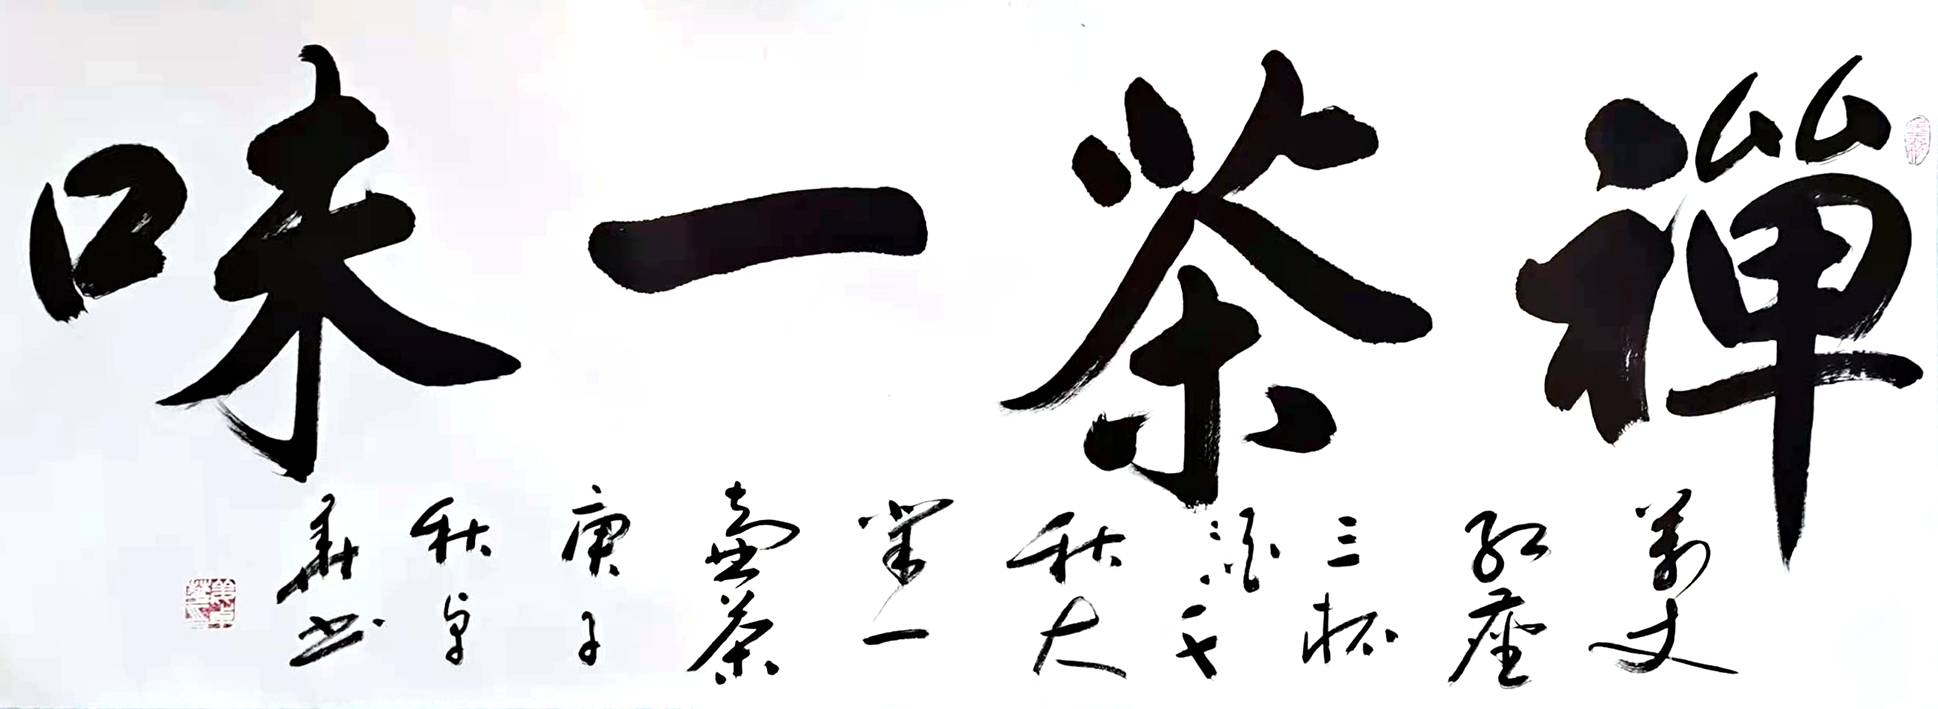 禪茶一味
萬丈
紅塵
三杯
酒千
秋大
業一
壺茶
庚子
秋卓
華書